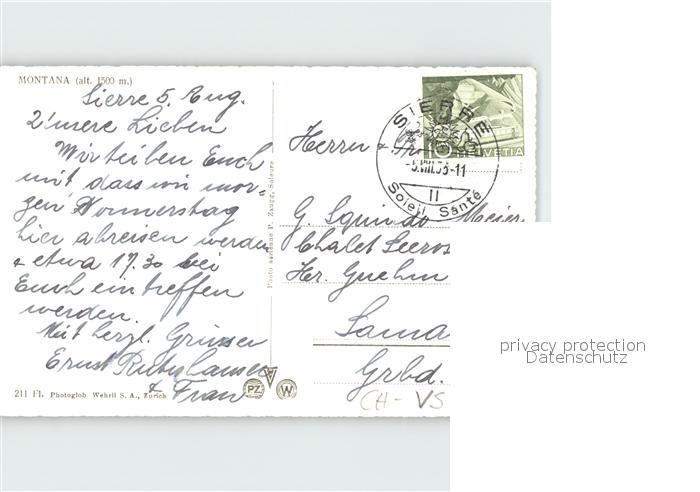 MONTANA (alt. 1500 m.)
Sierre 5. Aug.
Lieben
Wir teilen Euch
mit, dass wir mor-
gen Donnerstag
hier abreisen werden
& etwa 17.30 bei
Euch eintreffen
werden.
Mit herzl. Grüssen
Ernst Rutishauser
& Frau
211 Fl. Photoglob Wehrli S. A., Zürich
Photo aérienne P. Zaugg, Soleure
PZ W
SIERRE
-5.VIII.53-11
II
Soleil Santé
10 HELVETIA
Herrn &
G. Meier
Chalet
Hr.
Sama
Grbd.
CH-VS
privacy protection
Datenschutz